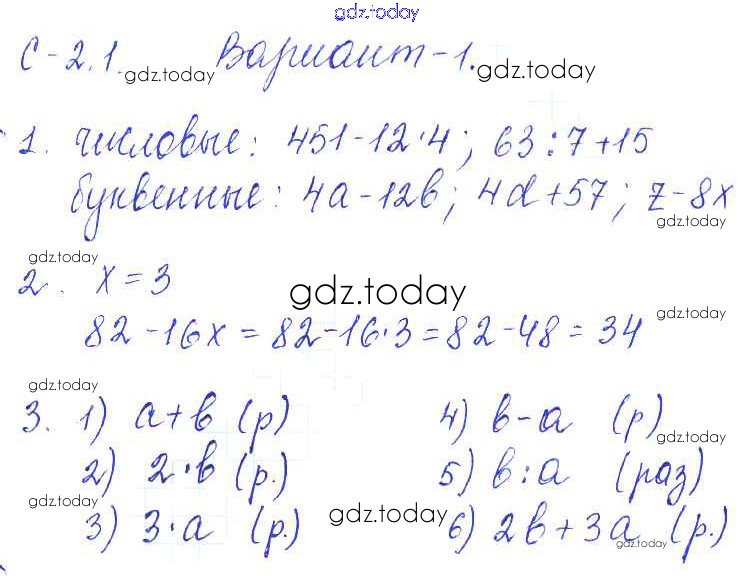 gdz.today
С-2.1. gdz.today Вариант-1. gdz.today
1. числовые: 451-12·4; 63:7+15
буквенные: 4a-12b; 4d+57; z-8x
gdz.today
gdz.today
2. x=3
gdz.today
gdz.today
82-16x=82-16·3=82-48=34
gdz.today
3. 1) a+b (р)
2) 2·b (р.)
gdz.today
3) 3·a (р.)
gdz.today
4) b-a (р)
gdz.today
5) b:a (раз)
6) 2b+3a (р.)
gdz.today